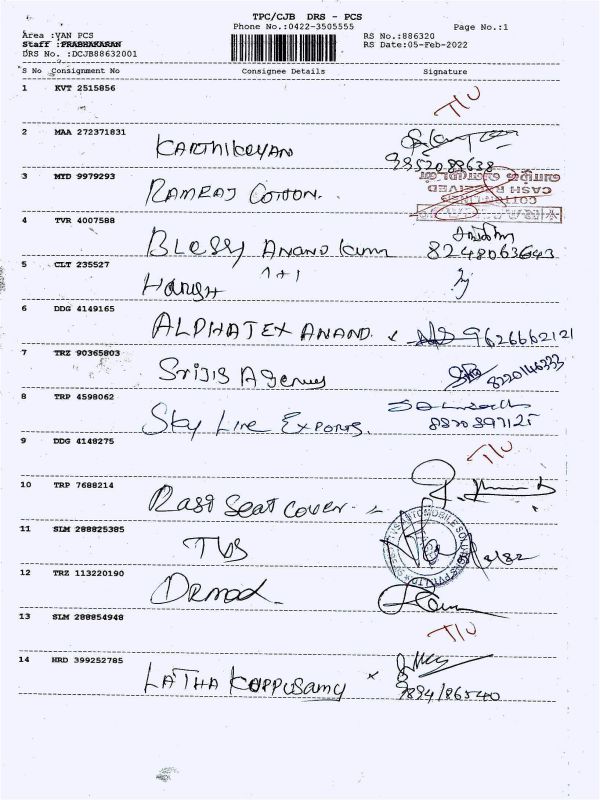 TPC/CJB DRS - PCS
Phone No.:0422-3505555 Page No.:1
Area :VAN PCS RS No.:886320
Staff :PRABHAKARAN RS Date:05-Feb-2022
DRS No. :DCJB88632001
S No Consignment No Consignee Details Signature
1 KVT 2515856
2 MAA 272371831 KARTHIKEYAN
3 MYD 9979293 RAMRAJ COTTON.
CASH RECEIVED
4 TVR 4007588 Blessy Anand kum
8248063643
1+1
5 CLT 235527 Harish
6 DDG 4149165 ALPHATEX ANAND. 9626662121
7 TRZ 90365803 Srijis Agency 8220146333
8 TRP 4598062 Sky Line Exports.
9 DDG 4148275
10 TRP 7688214 Rasi Seat cover
11 SLM 288825385 TVS
12 TRZ 113220190
13 SLM 288854948
14 HRD 399252785 LATHA KUPPUSAMY
9894186540